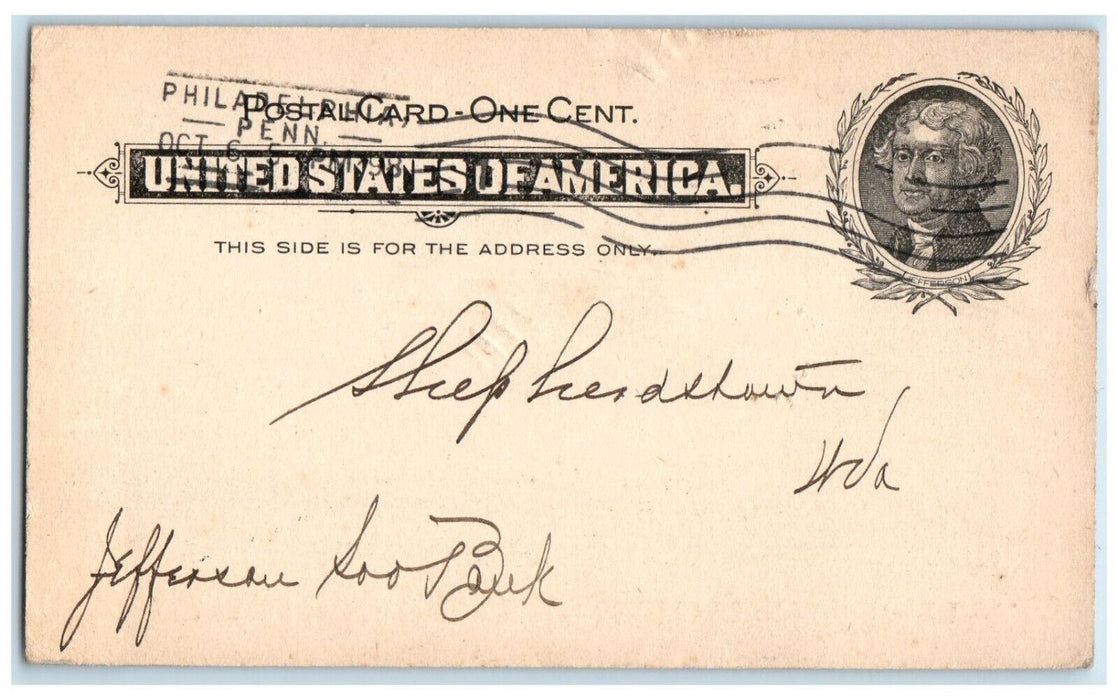 PHILADELPHIA,
PENN.
OCT 6 5 PM '98
POSTAL CARD - ONE CENT.
UNITED STATES OF AMERICA.
THIS SIDE IS FOR THE ADDRESS ONLY.
JEFFERSON
Shepherdstown
WVa
Jefferson Bank